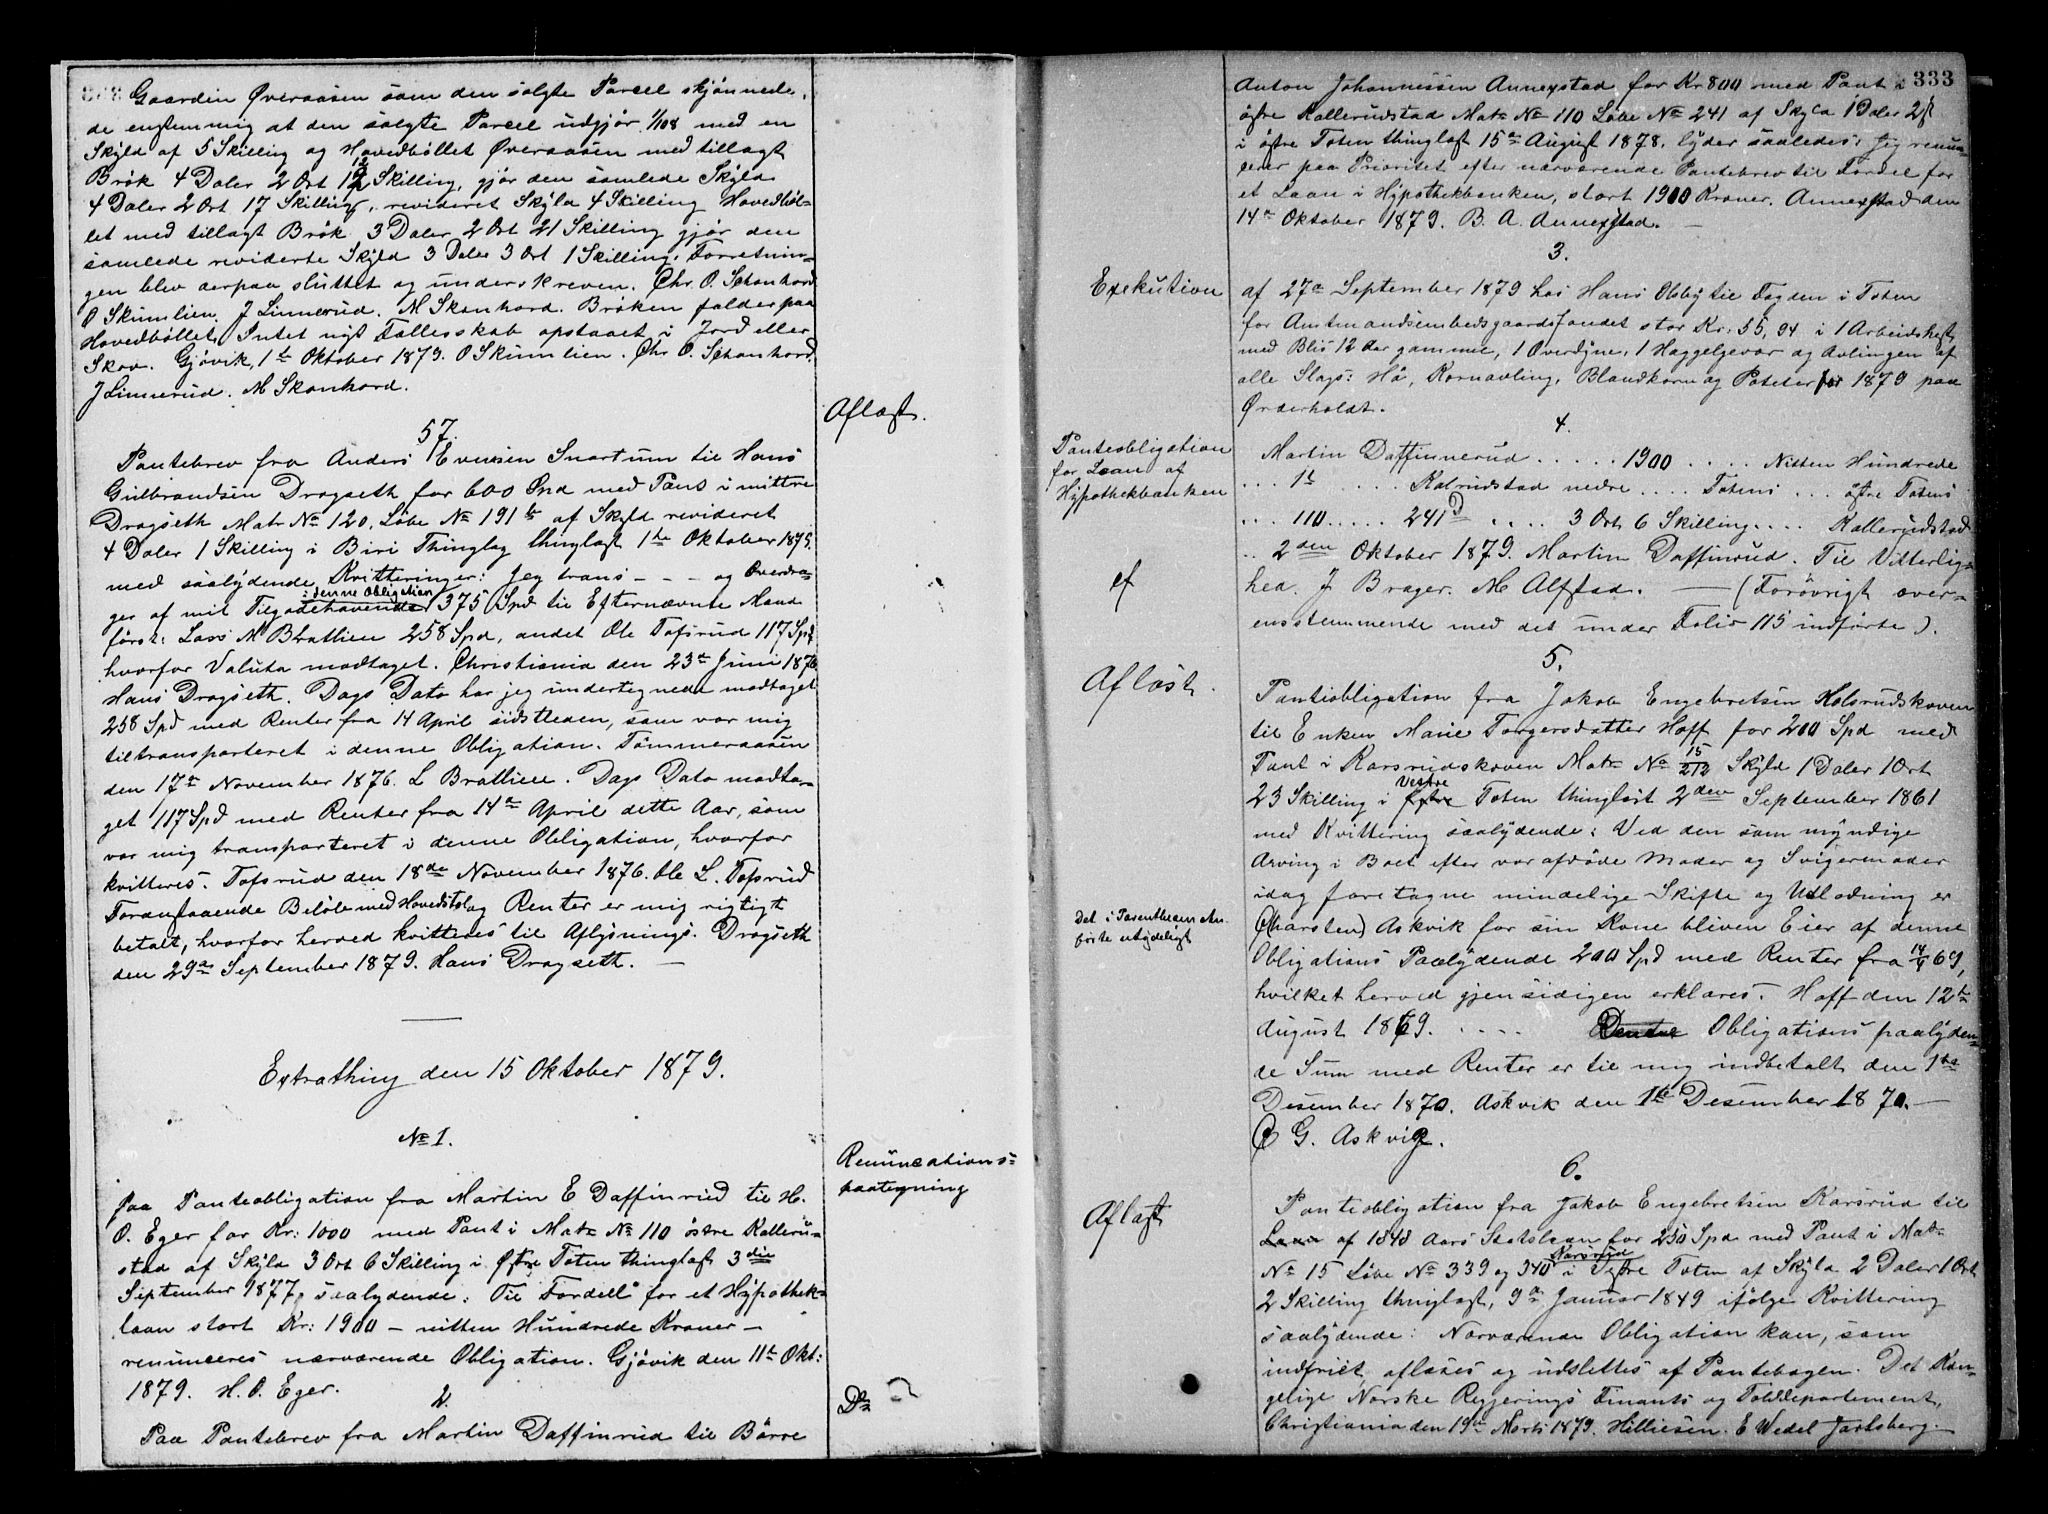 Gaarden Øveraasen som den solgte Parcel skjønnede
de enstemmig at den solgte Parcel udgjør 1/108 med en
Skyld af 5 Skilling og Hovedbøllet Øveraasen med tillagt
Brøk 4 Daler 2 Ort 12 Skilling, gjør den samlede Skyld
4 Daler 2 Ort 17 Skilling, revideret Skyld 4 Skilling Hovedbøl-
let med tillagt Brøk 3 Daler 2 Ort 21 Skilling gjør den
samlede reviderte Skyld 3 Daler 3 Ort 1 Skilling. Forretnin-
gen blev derpaa sluttet og underskreven. Chr. O. Schonhord
O Skumlien. J Linnerud. M Skonhord. Brøken falder paa
Hovedbøllet. Intet nyt Fællesskab opstaaet i Jord eller
Skov. Gjøvik, 1te Oktober 1879. O Skumlien. Chr. O. Schonhord.
J Linnerud. M Skonhord.
57.
Aflæst.
Pantebrev fra Anders Evensen Snartum til Hans
Gulbrandsen Dragseth for 600 Spd med Pant i mittre
Dragseth Matr No 120, Løbe No 191b af Skyld revideret
4 Daler 1 Skilling i Biri Thinglag thinglæst 1te Oktober 1875.
med saalydende Kvitteringer: Jeg trans - - - og Overdra-
ger af mit Tilgodehavende i denne Obligation 375 Spd til Efternævnte Mænd
først: Lars M Brathlien 258 Spd, andet Ole Tofsrud 117 Spd
hvorfor Valuta modtaget. Christiania den 23de Juni 1876.
Hans Dragseth. Dags Dato har jeg undertegnede modtaget
258 Spd med Renter fra 14 April sidstleden, som var mig
tiltransporteret i denne Obligation. Tømmeraasen
den 17de November 1876. L Brathlien. Dags Dato modta-
get 117 Spd med Renter fra 14de April dette Aar, som
var mig transporteret i denne Obligation, hvorfor
kvitteres. Tofsrud den 18de November 1876. Ole L. Tofsrud
Foranstaaende Beløb med Hovedstol og Renter er mig rigtigt
betalt, hvorfor herved kvitteres til Aflysning. Dragseth
den 29de September 1879. Hans Dragseth. —
Extrathing den 15 Oktober 1879.
No 1.
Renunciations-
paategning
Paa Panteobligation fra Martin E Daffinrud til H.
O. Eger for Kr: 1000 med Pant i Matr No 110 østre Kalleru-
stad af Skyld 3 Ort 6 Skilling i Østre Toten thinglæst 3die
September 1877, saalydende: Til Fordell for et Hypothek-
laan stort Kr: 1900 — nitten Hundrede Kroner —
renunceres nærværende Obligation. Gjøvik den 11te Okt:
1879. H. O. Eger.
2.
Do
Paa Pantebrev fra Martin Daffinrud til Børre
333
Anton Johannessen Annexstad for Kr 800 med Pant i
østre Kallerudstad Matr No 110 Løbe No 241 af Skyld 1 Daler 2
i østre Toten thinglæst 15de August 1878, lyder saaledes: Jeg renun-
cerer paa Prioritet efter nærværende Pantebrev til Fordel for
et Laan i Hypothekbanken, stort 1900 Kroner. Annexstad den
14de Oktober 1879. B. A. Annexstad. —
3.
Exekution
af 27de September 1879 hos Hans Obby til Fogden i Toten
for Amtmandsembedsgaardsfondet stor Kr: 55,94 i 1 Arbeidshest
med Blis 12 Aar gammel, 1 Overdyne, 1 Haggelgevær og Avlingen af
alle Slags: Hø, Kornavling, Blandkorn og Poteter for 1879 paa
Ørderholdt.
4.
Panteobligation
for Laan af
Hypothekbanken
Martin Daffinnerud . . . . . 1900 . . . . . Nitten Hundrede
. . . 1t . . . . Kalrudstad nedre . . . . Totens . . . østre Totens
. . . 110 . . . . . 241d . . . . . 3 Ort 6 Skilling . . . . Kallerudstad
. . 2den Oktober 1879. Martin Daffinrud. Til Vitterlig-
cf
hed. J Brager. M Alfstad. — (Forøvrigt over-
ensstemmende med det under Folio 115 indførte).
5.
Aflæst.
Pantiobligation fra Jakob Engebretsen Holsrudskoven
til Enken Marie Torgersdatter Hoff for 200 Spd med
Pant i Karsrudskoven Matr No 15/212 Skyld 1 Daler 1 Ort
23 Skilling i Østre Vestre Toten thinglæst 2den September 1861
med Kvittering saalydende: Ved den som myndige
Arving i Boet efter vor afdøde Moder og Svigermoder
idag foretagne mindelige Skifte og Udlodning er
Det i Parenthesen An-
førte utydeligt
(Charsten) Askvik for sin Kone bliven Eier af denne
Obligations Paalydende 200 Spd med Renter fra 14/4 69,
hvilket herved gjensidigen erklæres. Hoff den 12te
August 1869. . . . . Denne Obligations paalyden-
de Sum med Renter er til mig indbetalt den 1te
Desember 1870. Askvik den 1te Desember 1870. —
C G. Askvig.
6.
Aflæst
Panteobligation fra Jakob Engebretsen Karsrud til
Laan af 1848 Aars Statslaan for 250 Spd med Pant i Matr
No 15 Løbe No 339 og 340 Karsrud i Vestre Toten af Skyld 2 Daler 1 Ort
2 Skilling thinglæst, 9de Januar 1849 ifølge Kvittering
saalydende: Nærværende Obligation kan, som
indfriet, aflæses og udslettes af Pantebogen. Det Kon-
gelige Norske Regjerings Finants og Tolddepartement,
Christiania den 19de Marts 1879. Hilliesen. E Wedel Jarlsberg. —